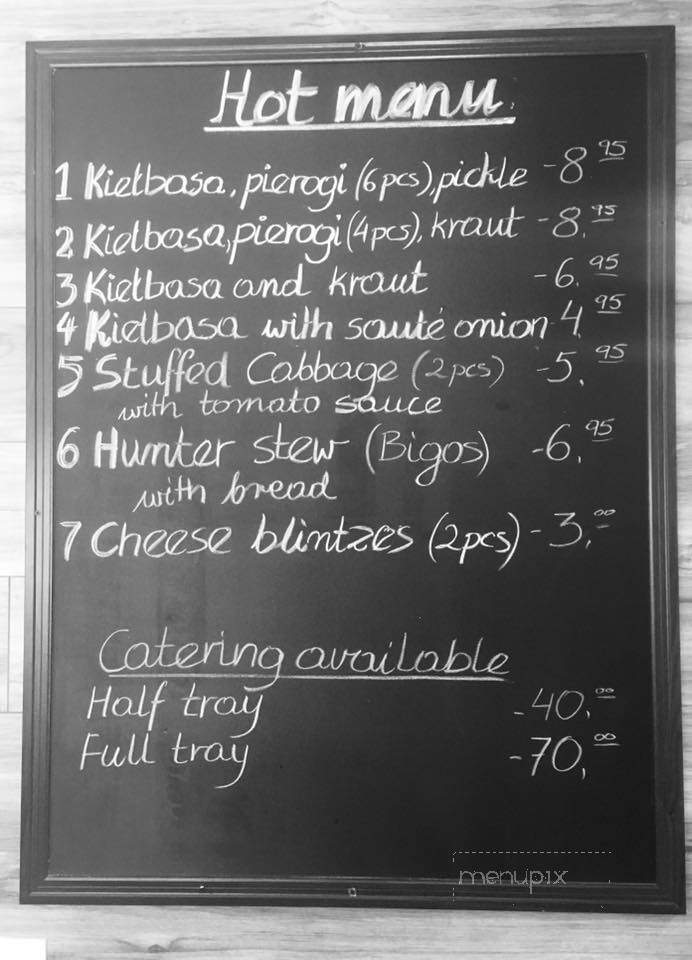 Hot menu
1 Kiełbasa, pierogi (6pcs), pickle - 8 95
2 Kielbasa, pierogi (4pcs), kraut - 8. 95
3 Kiełbasa and kraut - 6. 95
4 Kiełbasa with sauté onion 4. 95
5 Stuffed Cabbage (2pcs) - 5. 95
with tomato sauce
6 Hunter stew (Bigos) - 6. 95
with bread
7 Cheese blintzes (2pcs) - 3. 00
Catering available
Half tray - 40. 00
Full tray - 70. 00
menupix